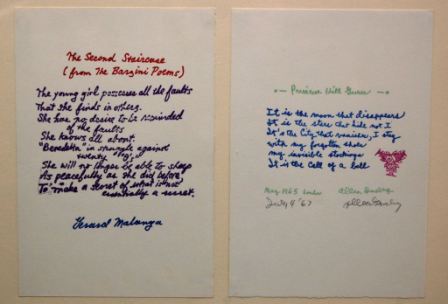 The Second Staircase
(from The Barzini Poems)
The young girl possesses all the faults
That she finds in others.
She has no desire to be reminded
of the faults
She knows all about.
"Benedetta" in struggle against
twenty
She will no longer be able to sleep
As peacefully as she did before,
To make a secret of what is not
essentially a secret.
Gerard Malanga
Primrose Hill Guru
It is the moon that disappears
It is the stars that hide not I
It's the City that vanishes, I stay
with my forgotten shoes,
my invisible stocking
It is the Call of a bell
May 1965
Allen Ginsberg
July 4 '67
Allen Ginsberg